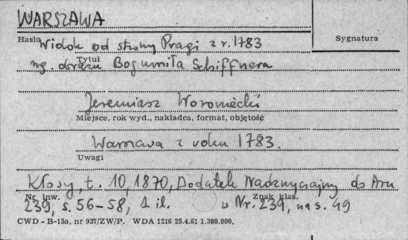 WARSZAWA
Hasło Widok od strony Pragi z r. 1783 Sygnatura
Tytuł
wg. obrazu Bogumiła Schiffnera
Jeremiasz Woroniecki
Miejsce, rok wyd., nakładca, format, objętość
Warszawa z roku 1783.
Uwagi
Kłosy, t. 10, 1870, Dodatek Nadzwyczajny do Nru
Nr. inw. Znak klas.
239, s. 56-58, 1 il. w Nr. 239, na s. 49
CWD - B-15a, nr 937/ZW/P. WDA 1216 25.4.61 1.380.000.